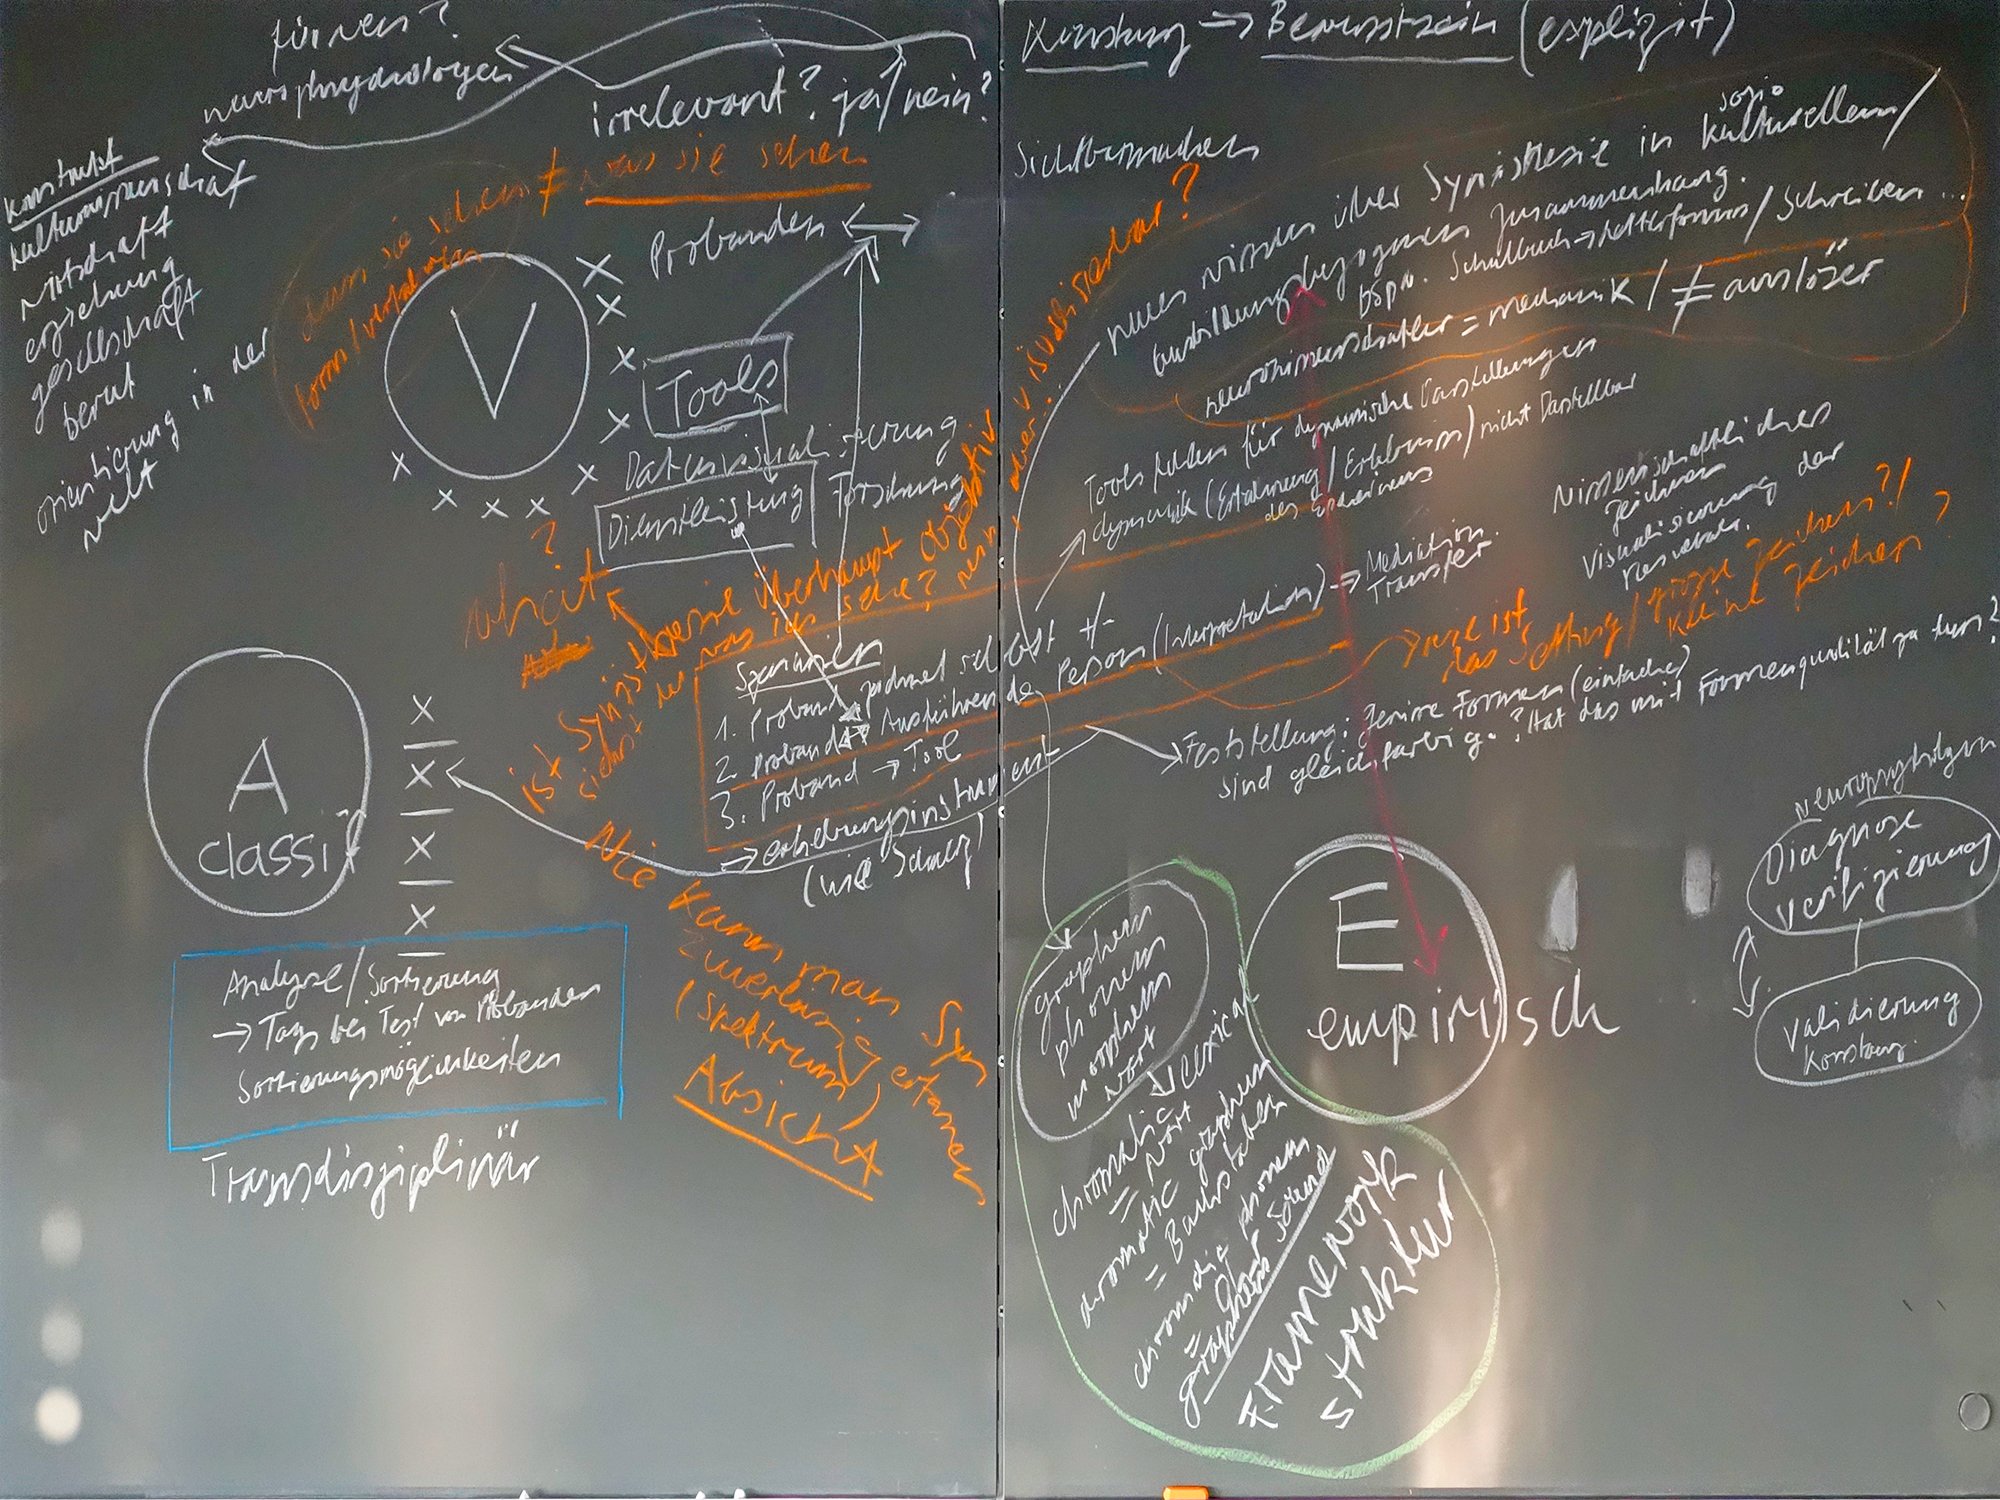 für wen?
neurophysiologen
irrelevant? ja/nein?
konstrukt
kulturwissenschaft
wirtschaft
erziehung
gesellschaft
beruf
orientierung in der
welt
dass sie sehen ≠ was sie sehen
form/verhalten
V
Probanden
Tools
Datenvisualisierung
Dienstleistung / Forschung
?
ist Synästhesie überhaupt objektiv visualisierbar?
siehst du was ich sehe? nein! aber...
Szenarien
1. Proband zeichnet selbst +/-
2. Proband Ausführende Person (Interpretation) → Mediation
Transfer
3. Proband → Tool
→ erhebungsinstrument
A
classif
Analyse/Sortierung
→ Tags bei Test von Probanden
Sortierungsmöglichkeiten
Transdisziplinär
Wie kann man Syn
zuverlässig erfassen
(Spektrum)
Absicht
→ Bewusstsein (explizit)
Sichtbarmachen
neues wissen über Synästhesie in sozio kulturellem/
ausbildungsbezogenem zusammenhang.
bspw. Schulbuch → letterforms/Schreiben...
neurowissenschaftler = mechanik / ≠ auslöser
Tools fehlen für dynamische Darstellungen
dynamik (Erfahrung/Erlebnis) nicht Darstellbar
des
Wissenschaftliches
zeichnen
Visualisierung der
wie ist
das Setting/grosse zeichen?/
kleine zeichen?
→ Feststellung: Formen (einfache)
sind gleichfarbig? Hat das mit Formenqualität zu tun?
Neuropsychologen
Diagnose
verifizierung
Validierung
E
empirisch
graphem
phonem
morphem
wort
chromatic lexical
= wort
chromatic graphem
= Buchstaben
chromatic phonem
= Sound
graphem
Framework
struktur